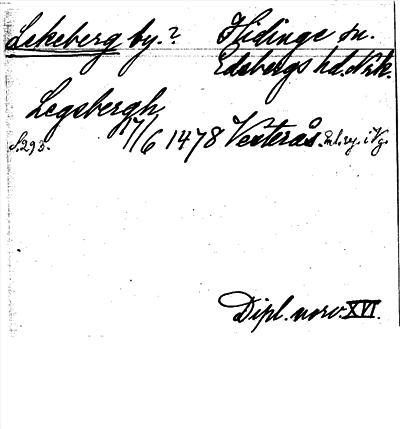 Lekeberg by.? Hidinge sn.
Edsbergs hd. Nrk.
Legsbergh
s.293. 17/6 1478 Vesterås. Enl. ry. i Vg.
Dipl. norv. XVI.